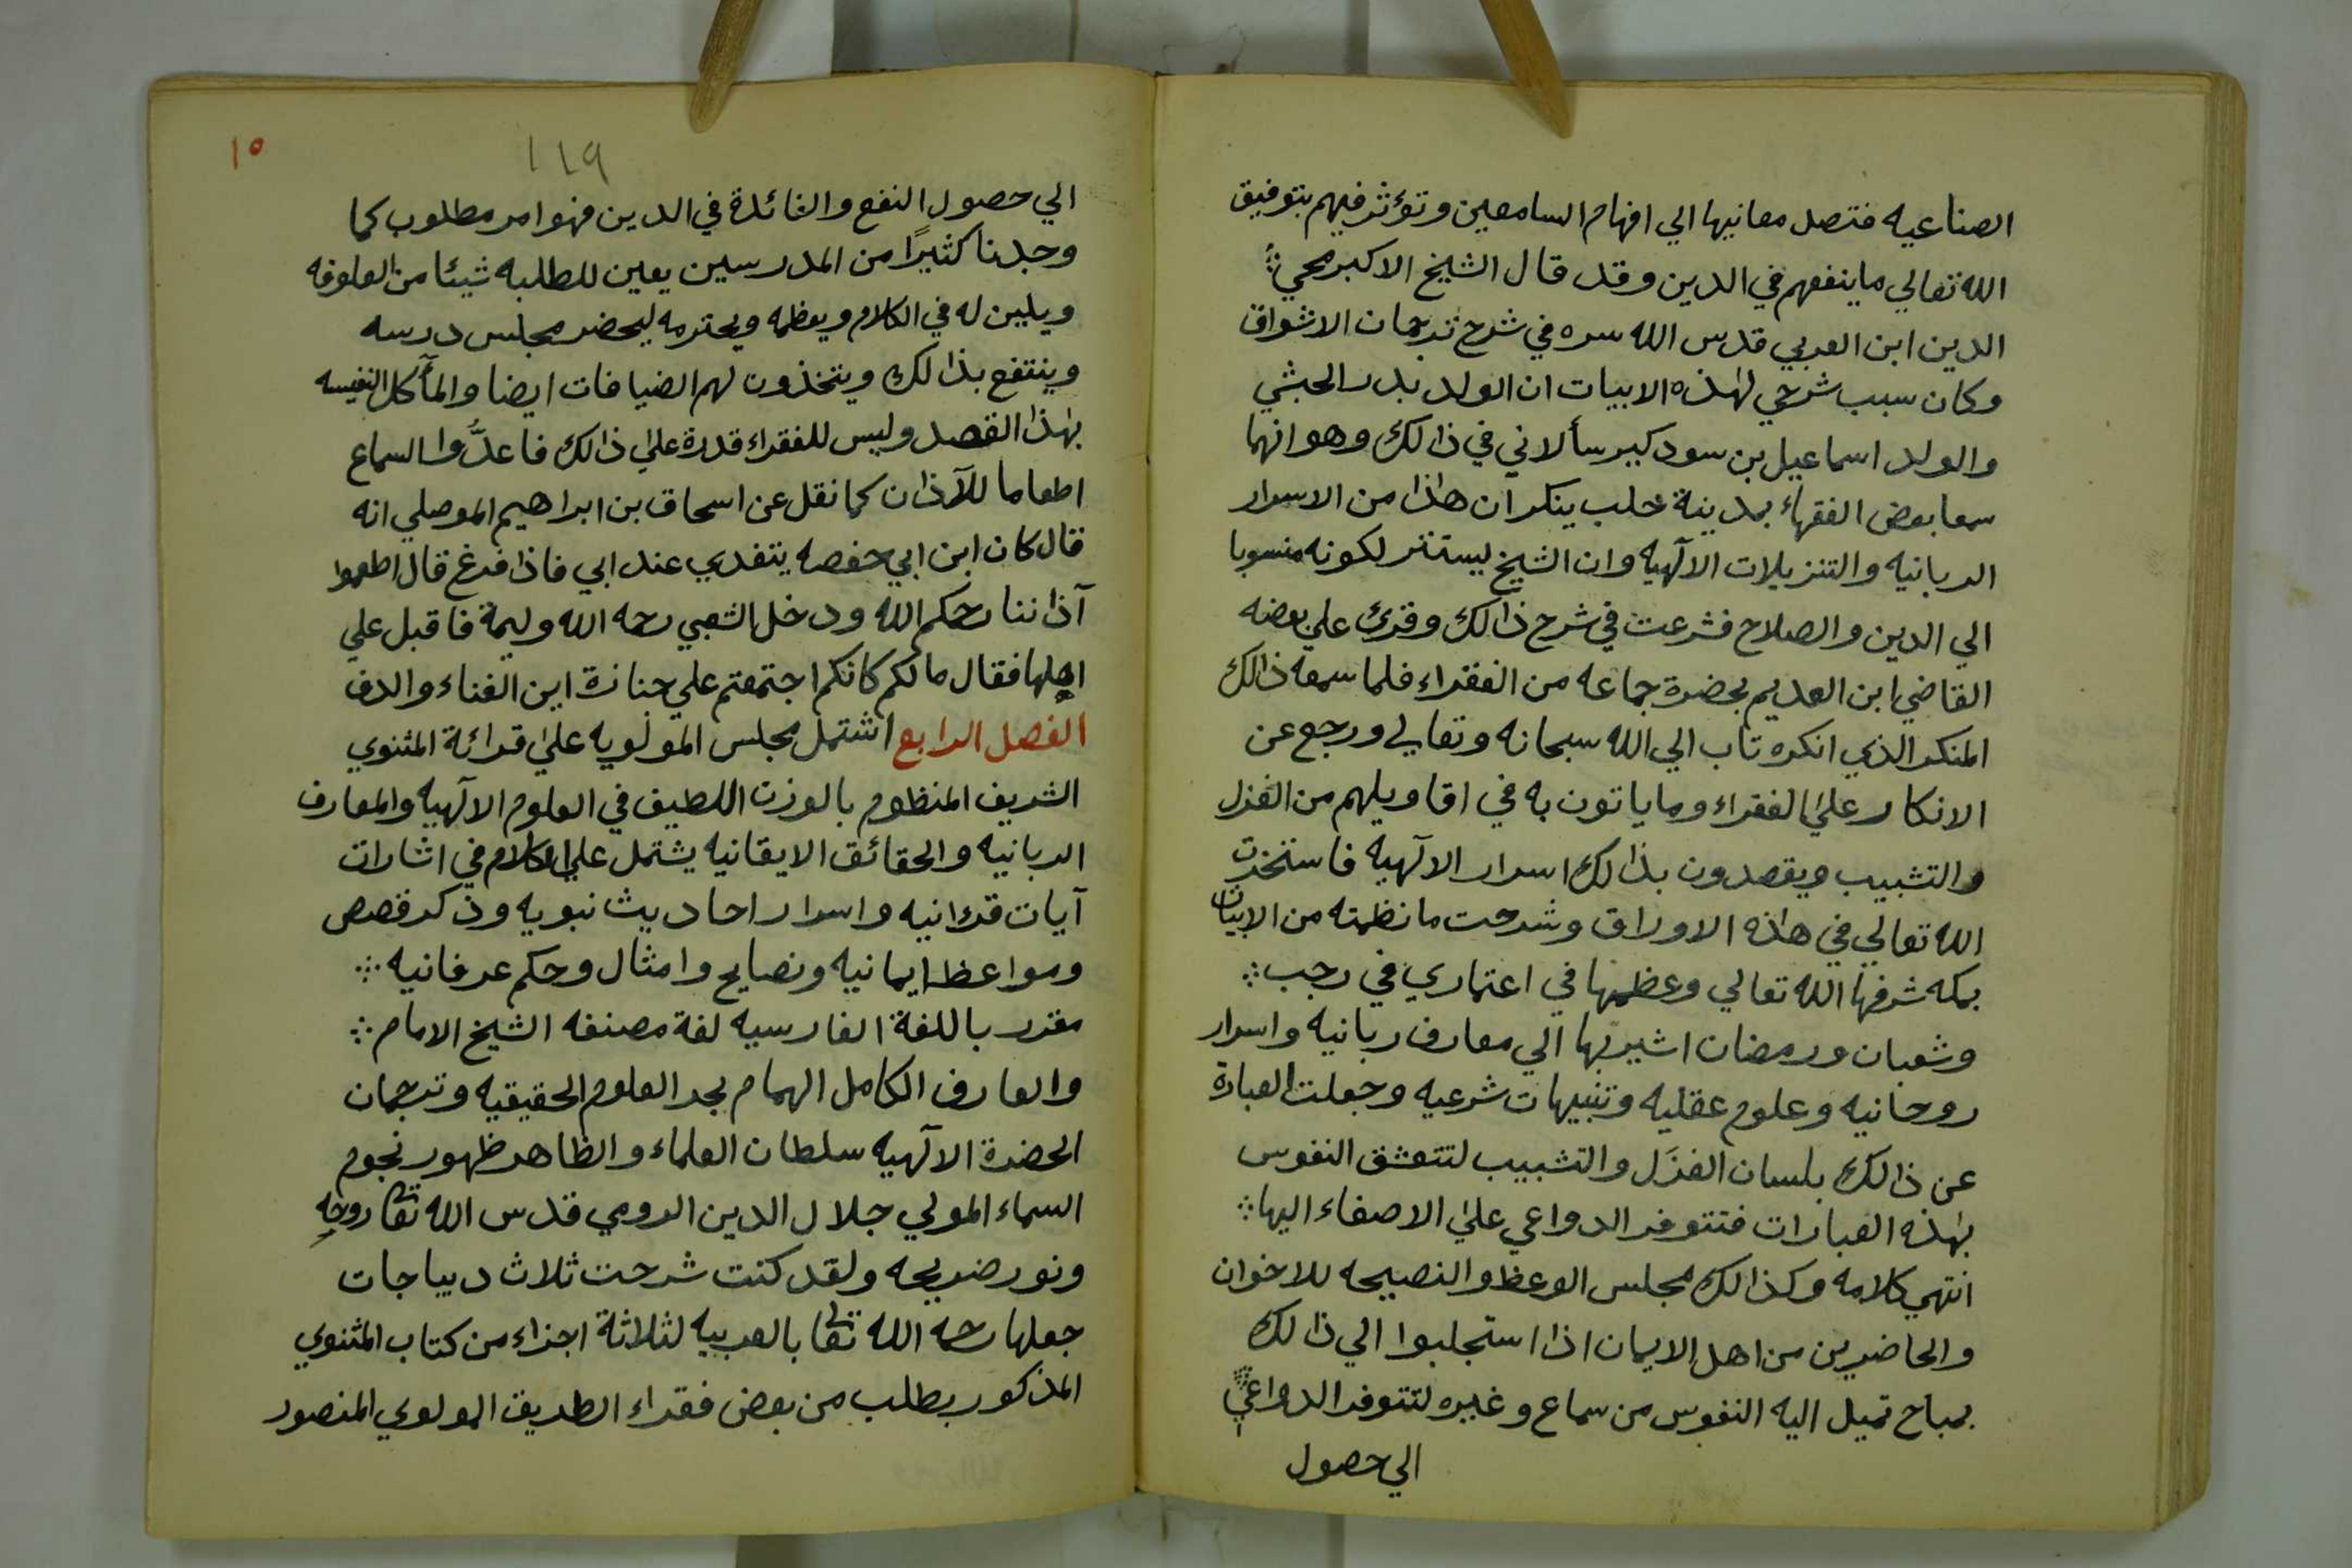 الصناعيه فتصل معانيها الي افهام السامعين وتؤثر فيهم بتوفيق
الله تعالي ما ينفعهم في الدين وقد قال الشيخ الاكبر محي
الدين ابن العربي قدس الله سره في شرح ترجمان الاشواق
وكان سبب شرحي لهذه الابيات ان الولد بدر الحبشي
والولد اسماعيل بن سودكير سألاني في ذالك وهو انهما
سمعا بعض الفقهاء بمدينة حلب ينكر ان هاذا من الاسرار
الربانيه والتنزيلات الآلهيه وان الشيخ يستتر لكونه منسوبا
الي الدين والصلاح فشرعت في شرح ذالك وقرئ علي بعضه
القاضي ابن العديم بحضرة جماعه من الفقراء فلما سمعه ذالك
المنكر الذي انكره تاب الي الله سبحانه وتعالي ورجع عن
الانكار علي الفقراء وما ياتون به في اقاويلهم من الغزل
والتشبيب ويقصدون بذالك اسرار الآلهيه فاستخرت
الله تعالي في هاذه الاوراق وشرحت ما نظمته من الابيات
بمكه شرفها الله تعالي وعظمها في اعتماري في رجب
وشعبان ورمضان اشير بها الي معارف ربانيه واسرار
روحانيه وعلوم عقليه وتنبيهات شرعيه وجعلت العبارة
عن ذالك بلسان الغزَل والتشبيب لتتعشق النفوس
بهذه العبارات فتتوفر الدواعي علي الاصغاء اليها
انتهي كلامه وكذالك مجلس الوعظ والنصيحه للاخوان
والحاضرين من اهل الايمان اذا استجلبوا الي ذالك
بمباح تميل اليه النفوس من سماع وغيره لتتوفر الدواعي
الي حصول
١١٩
١٥
الي حصول النفع والفائدة في الدين فهو امر مطلوب كما
وجدنا كثيرًا من المدرسين يعين للطلبه شيئا من العلوفه
ويلين له في الكلام ويعظمه ويحترمه ليحضر مجلس درسه
وينتفع بذالك ويتخذون لهم الضيافات ايضا والمآكل النفيسه
بهذا القصد وليس للفقراء قدرة علي ذالك فاعدُّوا السماع
اطعاما للآذان كما نقل عن اسحاق بن ابراهيم الموصلي انه
قال كان ابن ابي حفصه يتغدي عند ابي فاذا فرغ قال اطعموا
آذاننا رحمكم الله ودخل الشعبي رحمه الله وليمة فاقبل علي
اهلها فقال مالكم كانكم اجتمعتم علي جنازة اين الغناء والدف
الفصل الرابع اشتمل مجلس المولويه علي قرائة المثنوي
الشريف المنظوم بالوزن اللطيف في العلوم الآلهيه والمعارف
الربانيه والحقائق الايقانيه يشتمل علي الكلام في اشارات
آيات قرءانيه واسرار احاديث نبويه وذكر قصص
ومواعظ ايمانيه ونصايح وامثال وحكم عرفانيه
مقرر باللغة الفارسيه لغة مصنفه الشيخ الامام
والعارف الكامل الهمام بحر العلوم الحقيقيه وترجمان
الحضرة الآلهيه سلطان العلماء والظاهر ظهور نجوم
السماء المولي جلال الدين الرومي قدس الله تعا روحه
ونور ضريحه ولقد كنت شرحت ثلاث ديباجات
جعلها رحمه الله تعا بالعربيه لثلاثة اجزاء من كتاب المثنوي
المذكور بطلب من بعض فقراء الطريق المولوي المنصور